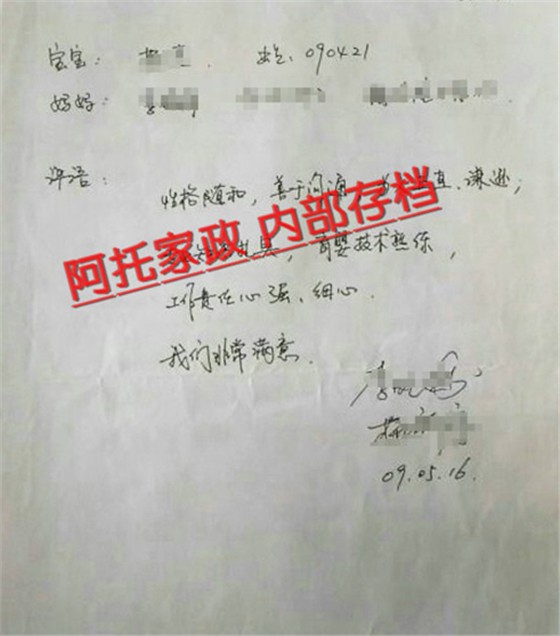 宝宝: 出生: 090421
妈妈:
评语: 性格随和, 善于沟通, 谦逊;
阿托家政 内部存档
扎实, 育婴技术熟练,
工作责任心强、细心.
我们非常满意.
09.05.16.